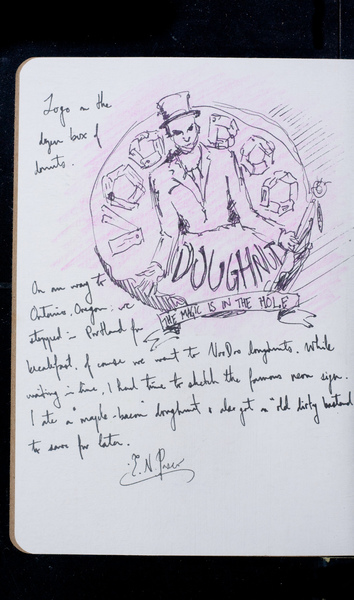 Logo on the
dozen box of
donuts.
DOUGHNUT
THE MAGIC IS IN THE HOLE
On our way to
Ontario, Oregon, we
stopped in Portland for
breakfast. Of course we went to VooDoo Doughnuts. While
waiting in line, I had time to sketch the famous neon sign.
I ate a "maple-bacon" doughnut & also got a "old dirty bastard
to save for later.